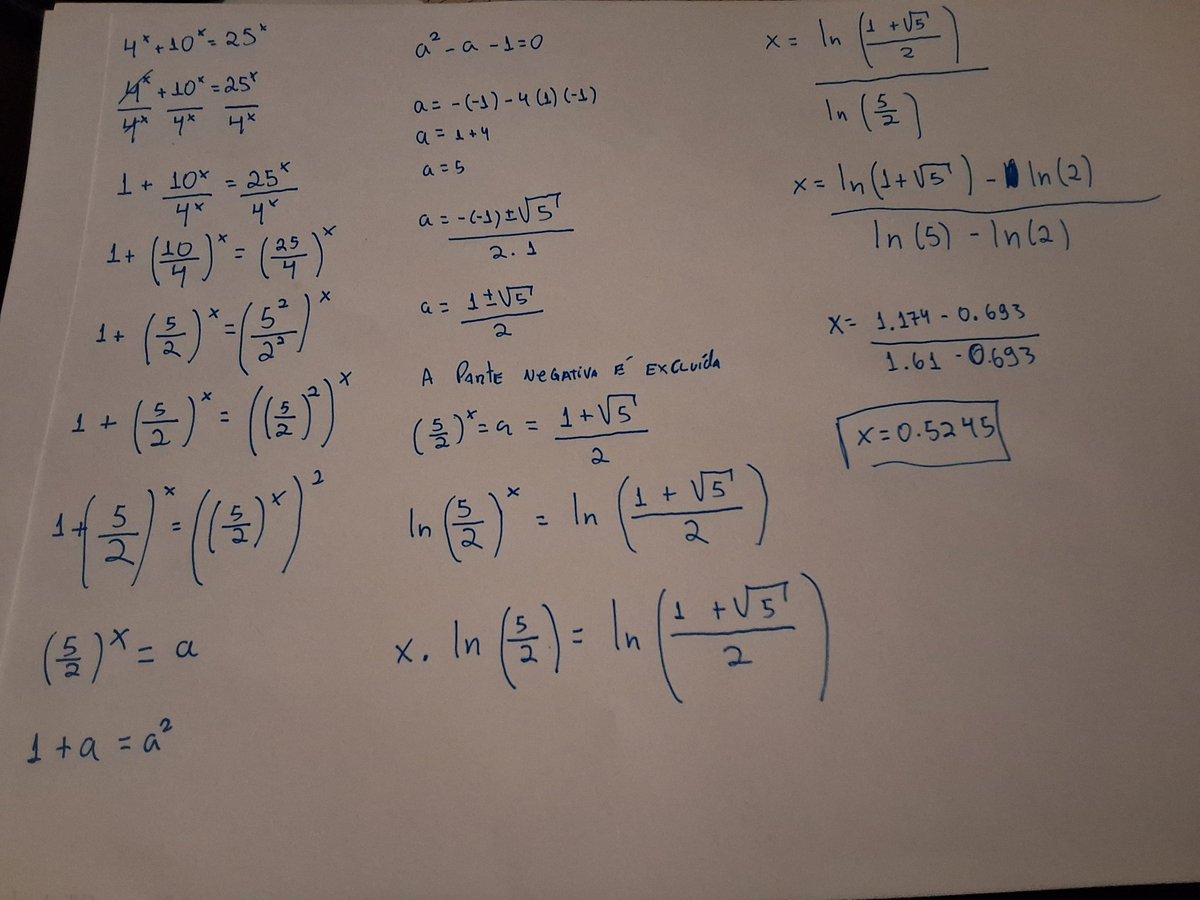 4^x + 10^x = 25^x
4^x/4^x + 10^x/4^x = 25^x/4^x
1 + 10^x/4^x = 25^x/4^x
1 + (10/4)^x = (25/4)^x
1 + (5/2)^x = (5^2/2^2)^x
1 + (5/2)^x = ((5/2)^2)^x
1 + (5/2)^x = ((5/2)^x)^2
(5/2)^x = a
1 + a = a^2
a^2 - a - 1 = 0
a = -(-1) - 4(1)(-1)
a = 1 + 4
a = 5
a = (-(-1) ± √5)/(2 . 1)
a = (1 ± √5)/2
A PARTE NEGATIVA É EXCLUÍDA
(5/2)^x = a = (1 + √5)/2
ln(5/2)^x = ln((1 + √5)/2)
x . ln(5/2) = ln((1 + √5)/2)
x = ln((1 + √5)/2)/ln(5/2)
x = (ln(1 + √5) - ln(2))/(ln(5) - ln(2))
x = (1.174 - 0.693)/(1.61 - 0.693)
x = 0.5245